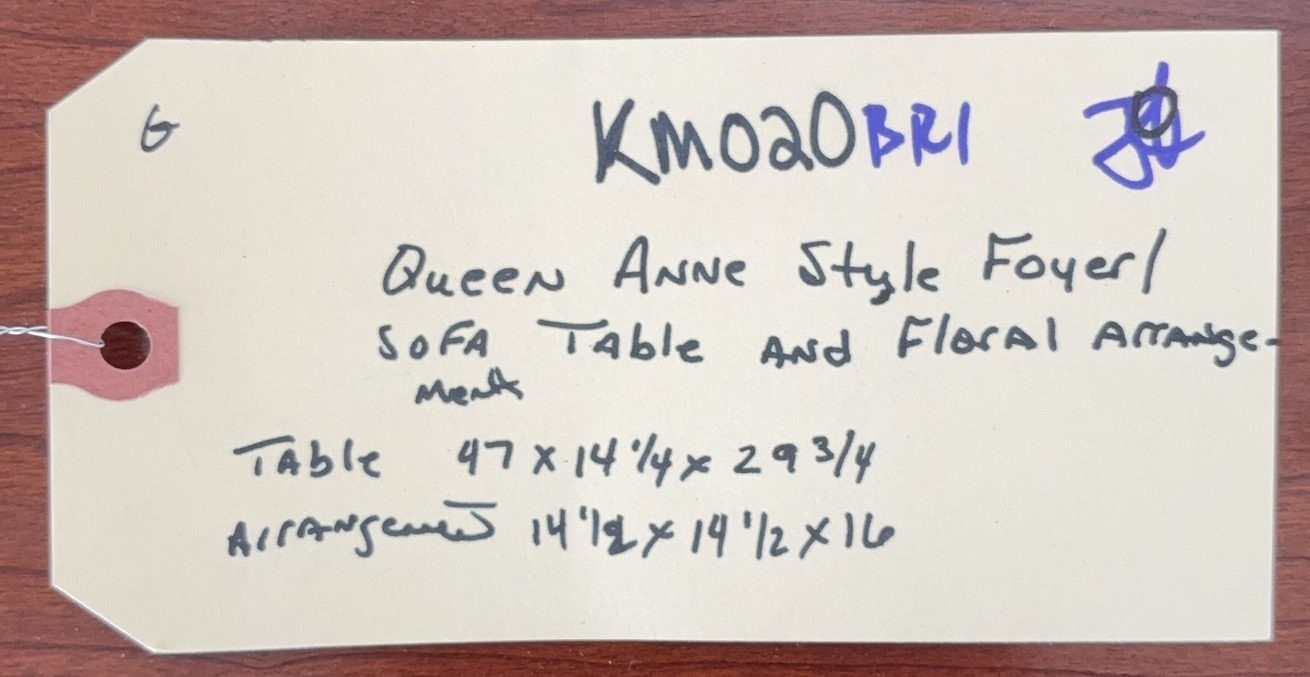 G
KM020BRI
Queen Anne Style Foyer/
Sofa Table and Floral Arrange-
ment
Table 47 x 14 1/4 x 29 3/4
Arrangement 14 1/2 x 14 1/2 x 16